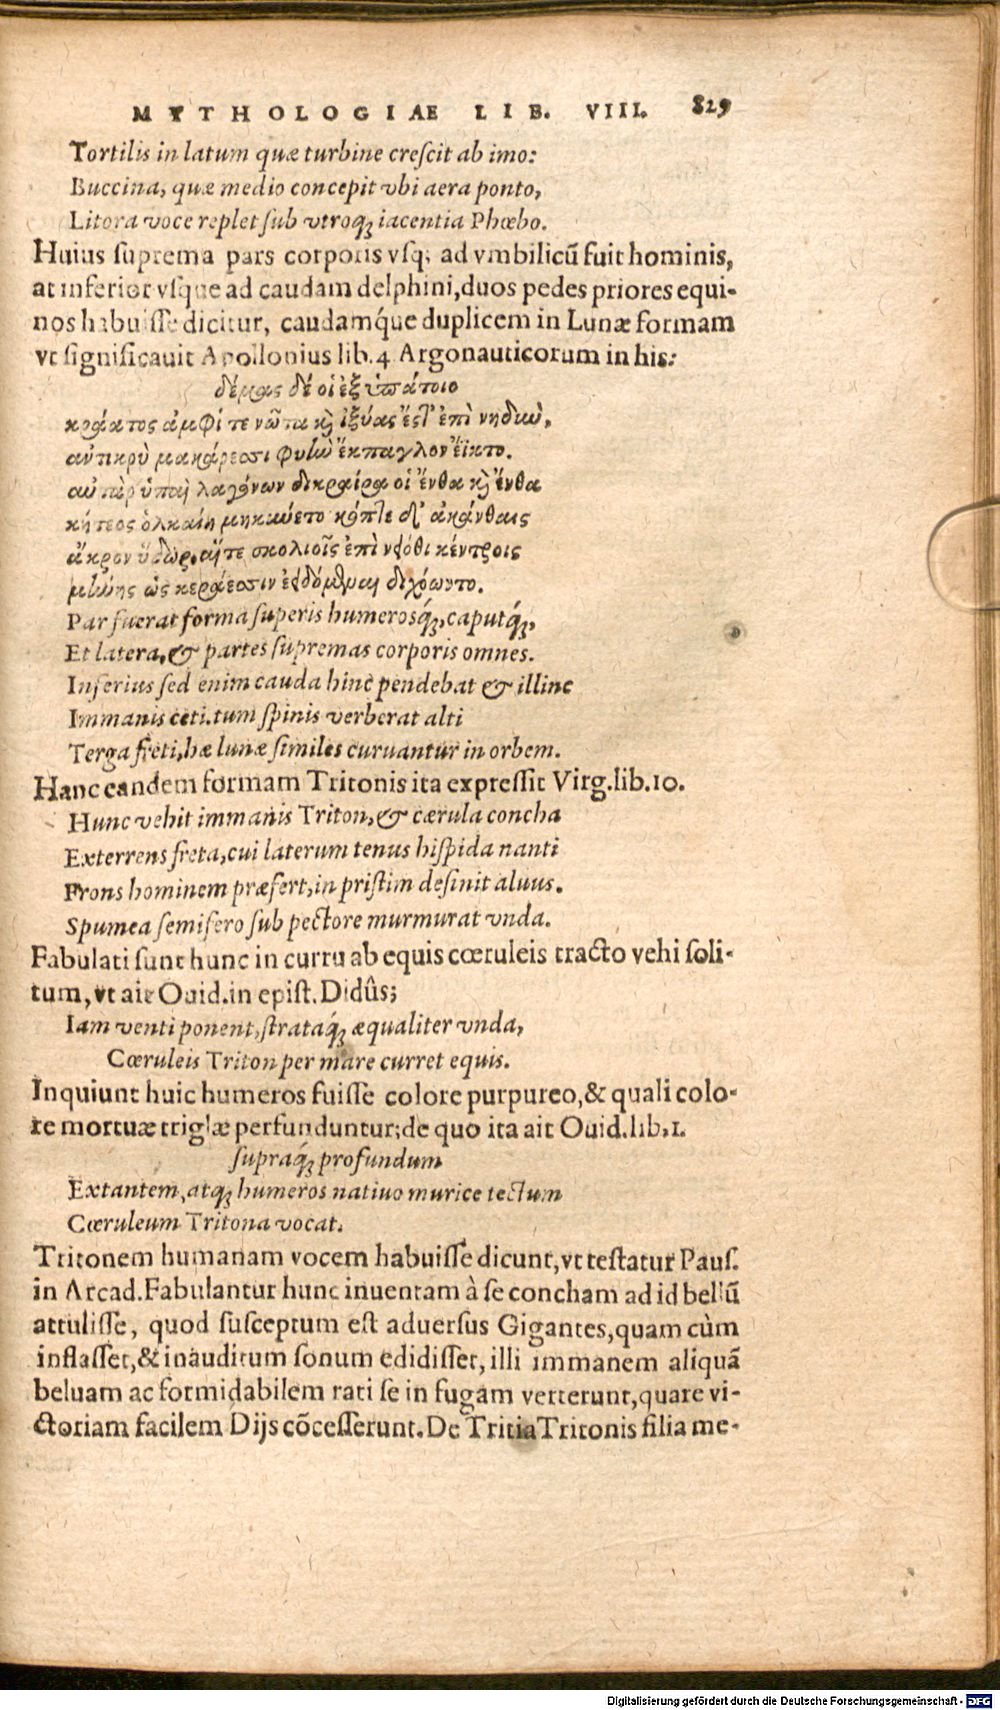 MYTHOLOGIÆ LIB. VIII. 829
Tortilis in latum quæ turbine creſcit ab imo:
Buccina, quæ medio concepit vbi aera ponto,
Litora voce replet ſub vtroqꝫ iacentia Phœbo.
Huius ſuprema pars corporis vſqꝫ ad vmbilicū fuit hominis,
at inferior vſque ad caudam delphini, duos pedes priores equi-
nos habuiſſe dicitur, caudamq́ue duplicem in Lunæ formam
vt ſignificauit Apollonius lib.4 Argonauticorum in his:
δέμας δέ οἱ ἐξ ὑπάτοιο
κράατος ἀμφί τε νῶτα καὶ ἰξύας ἔς τ' ἐπὶ νηδιὼ,
αὐτικρὺ μακάρεσσι φυὴν ἔκπαγλον ἔϊκτο.
αὐτὰρ ὑπαὶ λαγόνων δικραίρα οἱ ἔνθα καὶ ἔνθα
κήτεος ὁλκαίη μηκύνετο κόπτε δ' ἀκάνθαις
ἄκρον ὕδωρ, αἵτε σκολιοῖς ἐπὶ νειόθι κέντροις
μήνης ὡς κεράεσσιν ἐειδόμεναι διχόωντο.
Par fuerat forma ſuperis humerosq́ꝫ, caputq́ꝫ,
Et latera, & partes ſupremas corporis omnes.
Inferius ſed enim cauda hinc pendebat & illinc
Immanis ceti. tum ſpinis verberat alti
Terga freti, hæ lunæ ſimiles curuantur in orbem.
Hanc eandem formam Tritonis ita expreſſit Virg.lib.10.
Hunc vehit immanis Triton, & cærula concha
Exterrens freta, cui laterum tenus hiſpida nanti
Frons hominem præfert, in priſtim deſinit aluus.
Spumea ſemifero ſub pectore murmurat vnda.
Fabulati ſunt hunc in curru ab equis cœruleis tracto vehi ſoli-
tum, vt ait Ouid. in epiſt. Didûs;
Iam venti ponent, ſtrataq́ꝫ æqualiter vnda,
Cœruleis Triton per mare curret equis.
Inquiunt huic humeros fuiſſe colore purpureo, & quali colo-
re mortuæ triglæ perfunduntur; de quo ita ait Ouid.lib.1.
ſupraq́ꝫ profundum
Extantem, atqꝫ humeros natiuo murice tectum
Cœruleum Tritona vocat.
Tritonem humanam vocem habuiſſe dicunt, vt teſtatur Pauſ.
in Arcad. Fabulantur hunc inuentam à ſe concham ad id bellū
attuliſſe, quod ſuſceptum eſt aduerſus Gigantes, quam cùm
inflaſſet, & inauditum ſonum edidiſſet, illi immanem aliquā
beluam ac formidabilem rati ſe in fugam verterunt, quare vi-
ctoriam facilem Dijs cōceſſerunt. De Tritia Tritonis filia me-
Digitalisierung gefördert durch die Deutsche Forschungsgemeinschaft - DFG